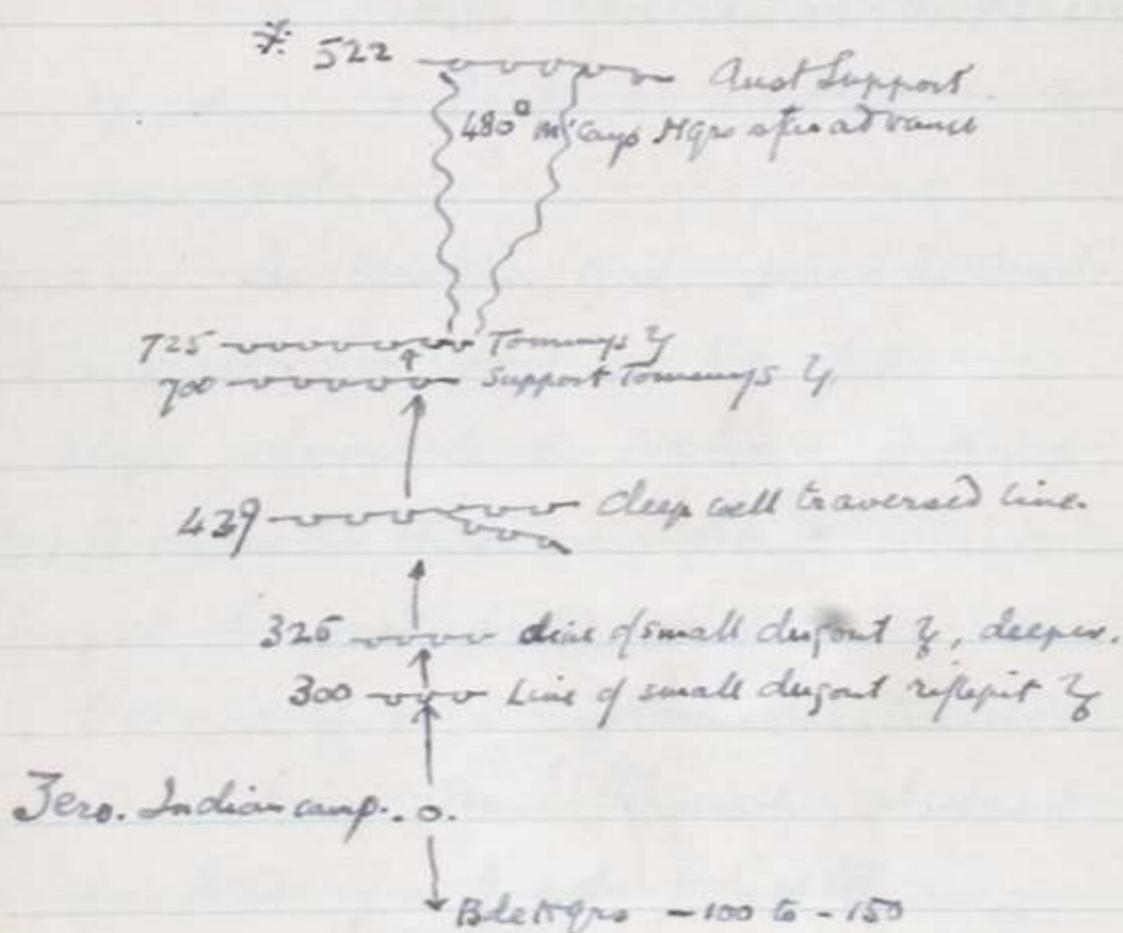 522 Aust Support
480 m'Cays HQrs after advance
725 Tommys
700 Support Tommys
439 deep well traversed line.
325 Line of small dugout, deeper.
300 Line of small dugout riflepit
Zero. Indian camp. o.
Bde HQrs -100 to -150